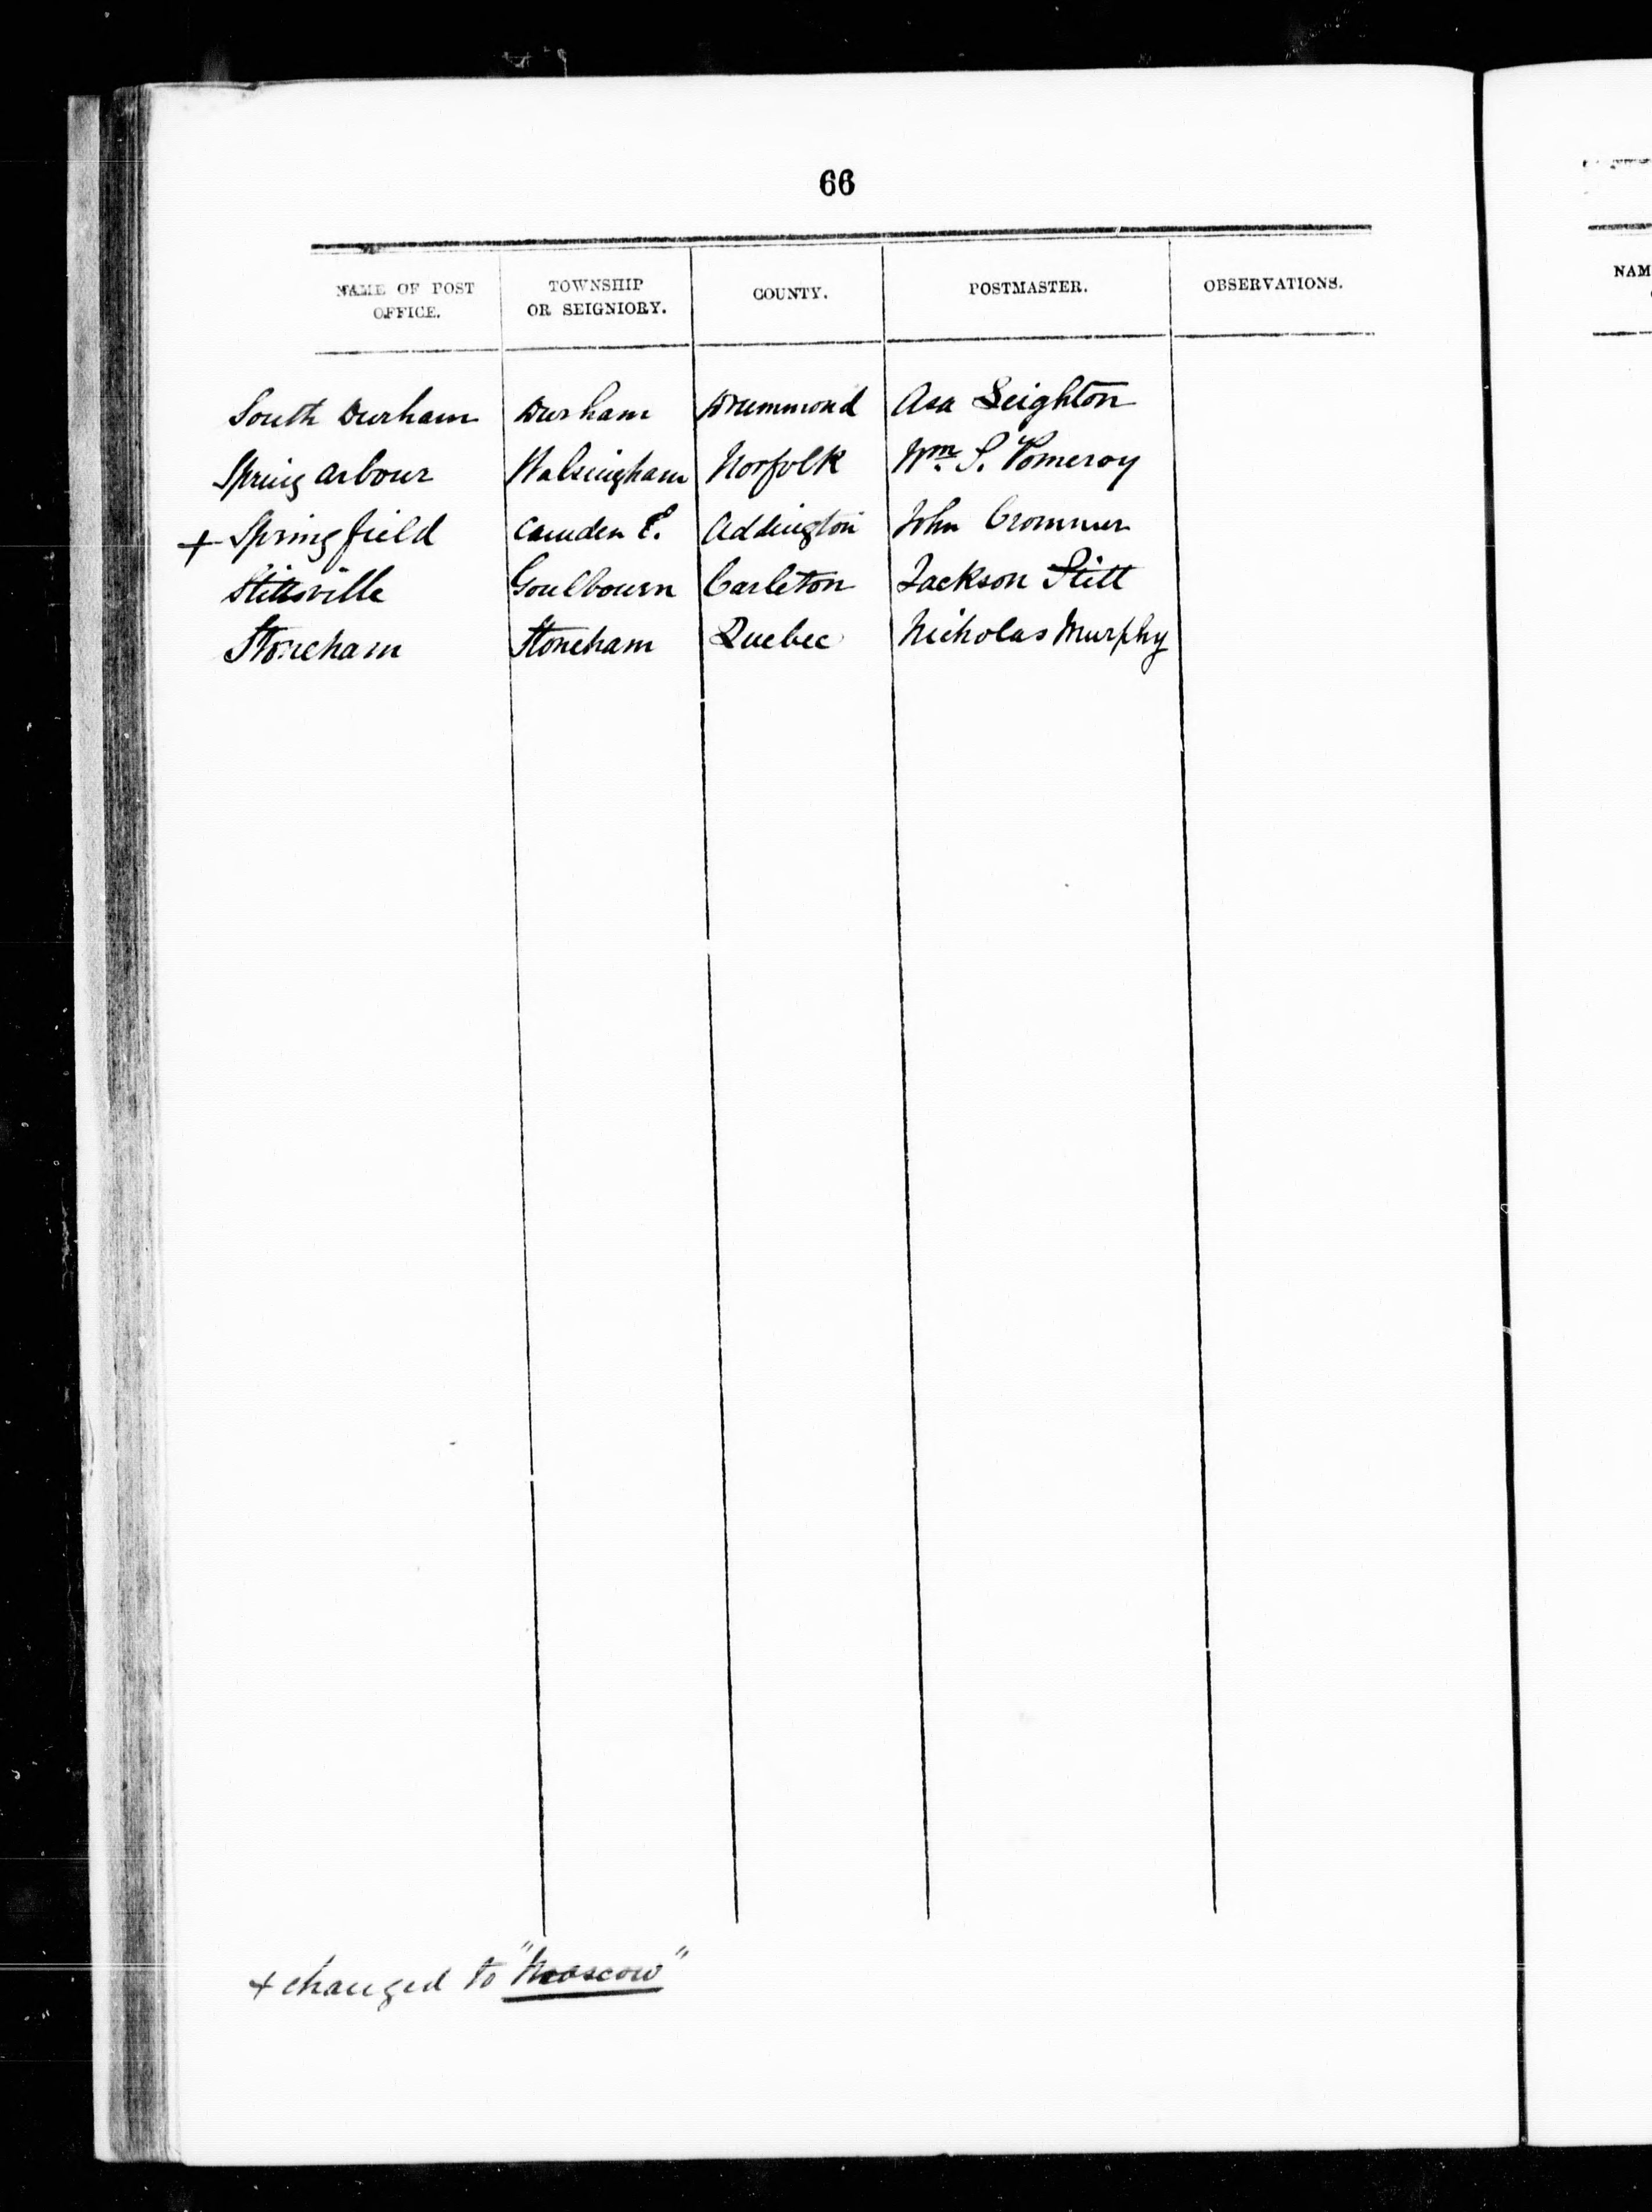 66
NAME OF POST OFFICE. TOWNSHIP OR SEIGNIORY. COUNTY. POSTMASTER. OBSERVATIONS.
South Durham Durham Drummond Asa Leighton
Spring Arbour Walsingham Norfolk Wm. S. Pomeroy
+ Springfield Camden E. Addington John
Stittsville Goulbourn Carleton Jackson Stitt
Stoneham Stoneham Quebec Nicholas Murphy
+ changed to "Moscow"
NAM